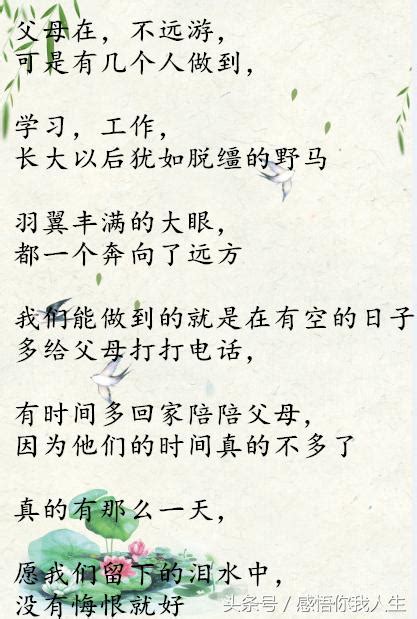 父母在，不远游，
可是有几个人做到，
学习，工作，
长大以后犹如脱缰的野马
羽翼丰满的大眼，
都一个奔向了远方
我们能做到的就是在有空的日子
多给父母打打电话，
有时间多回家陪陪父母，
因为他们的时间真的不多了
真的有那么一天，
愿我们留下的泪水中，
没有悔恨就好
头条号 / 感悟你我人生